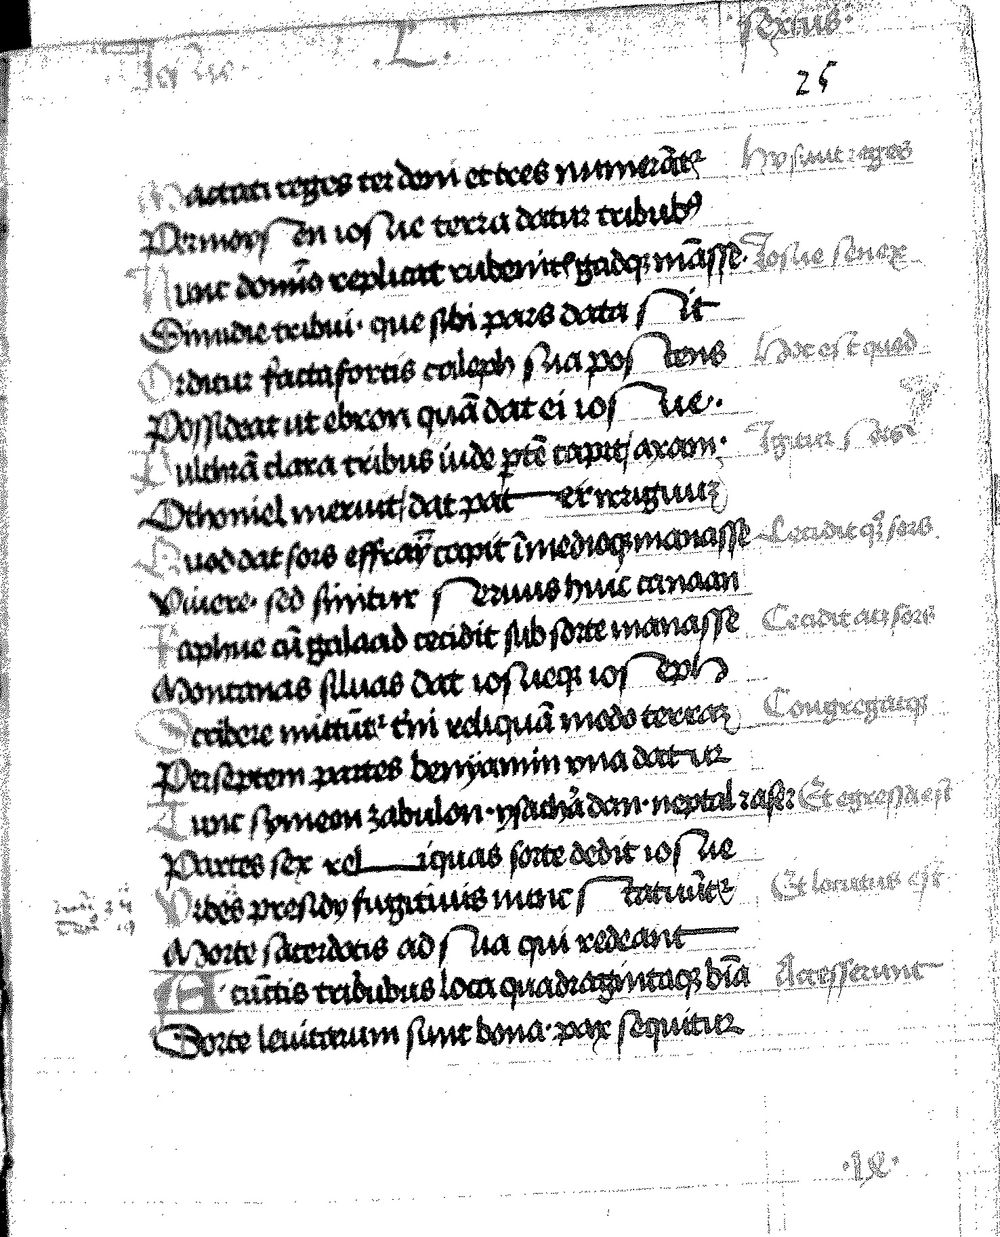 Iosue. L. sextus.
25
Mactati reges ter deni et tres numerãtr hy sunt reges
Per moysen iosue terra datur tribubꝰ
Nunc domĩo replicat rubenitꝭ gadqꝫ mãsse. Iosue senex
Dimidie tribui. que sibi pars data sit
Orditur facta fortis caleph sua postens Hoc est quod
Possideat ut ebron quã dat ei iosue.
Pulchrã clara tribus iude ptẽ capit/ axam. Igitur sors
Othoniel meruit/ dat pater irriguuꝫ
Quod dat sors effray capit ĩmedioqꝫ manasse Cecidit qꝫ sors
Vivere. sed sinitur servus huic canaan
Taphue cũ galaad cecidit sub sorte manasse Cecidit aut sors
Montanas siluas dat iosueqꝫ ioseph
Scribere mittũtr reliquã modo terraꝫ Congregatiqꝫ
Per septem partes benyamin una datur
Tunc symeon zabulon. ysachã dan. neptal ꝛ aser Et egressa est
Partes sex reliquas sorte dedit iosue
Vrbes presidy fugitiuis nunc statuũtr Et locutus est
Morte sacerdotis ad sua qui redeant
A cũctis tribubus loca quadragintaqꝫ bĩa Accesserunt
Sorte leuitarum sunt bona. pax sequitur
.IX.